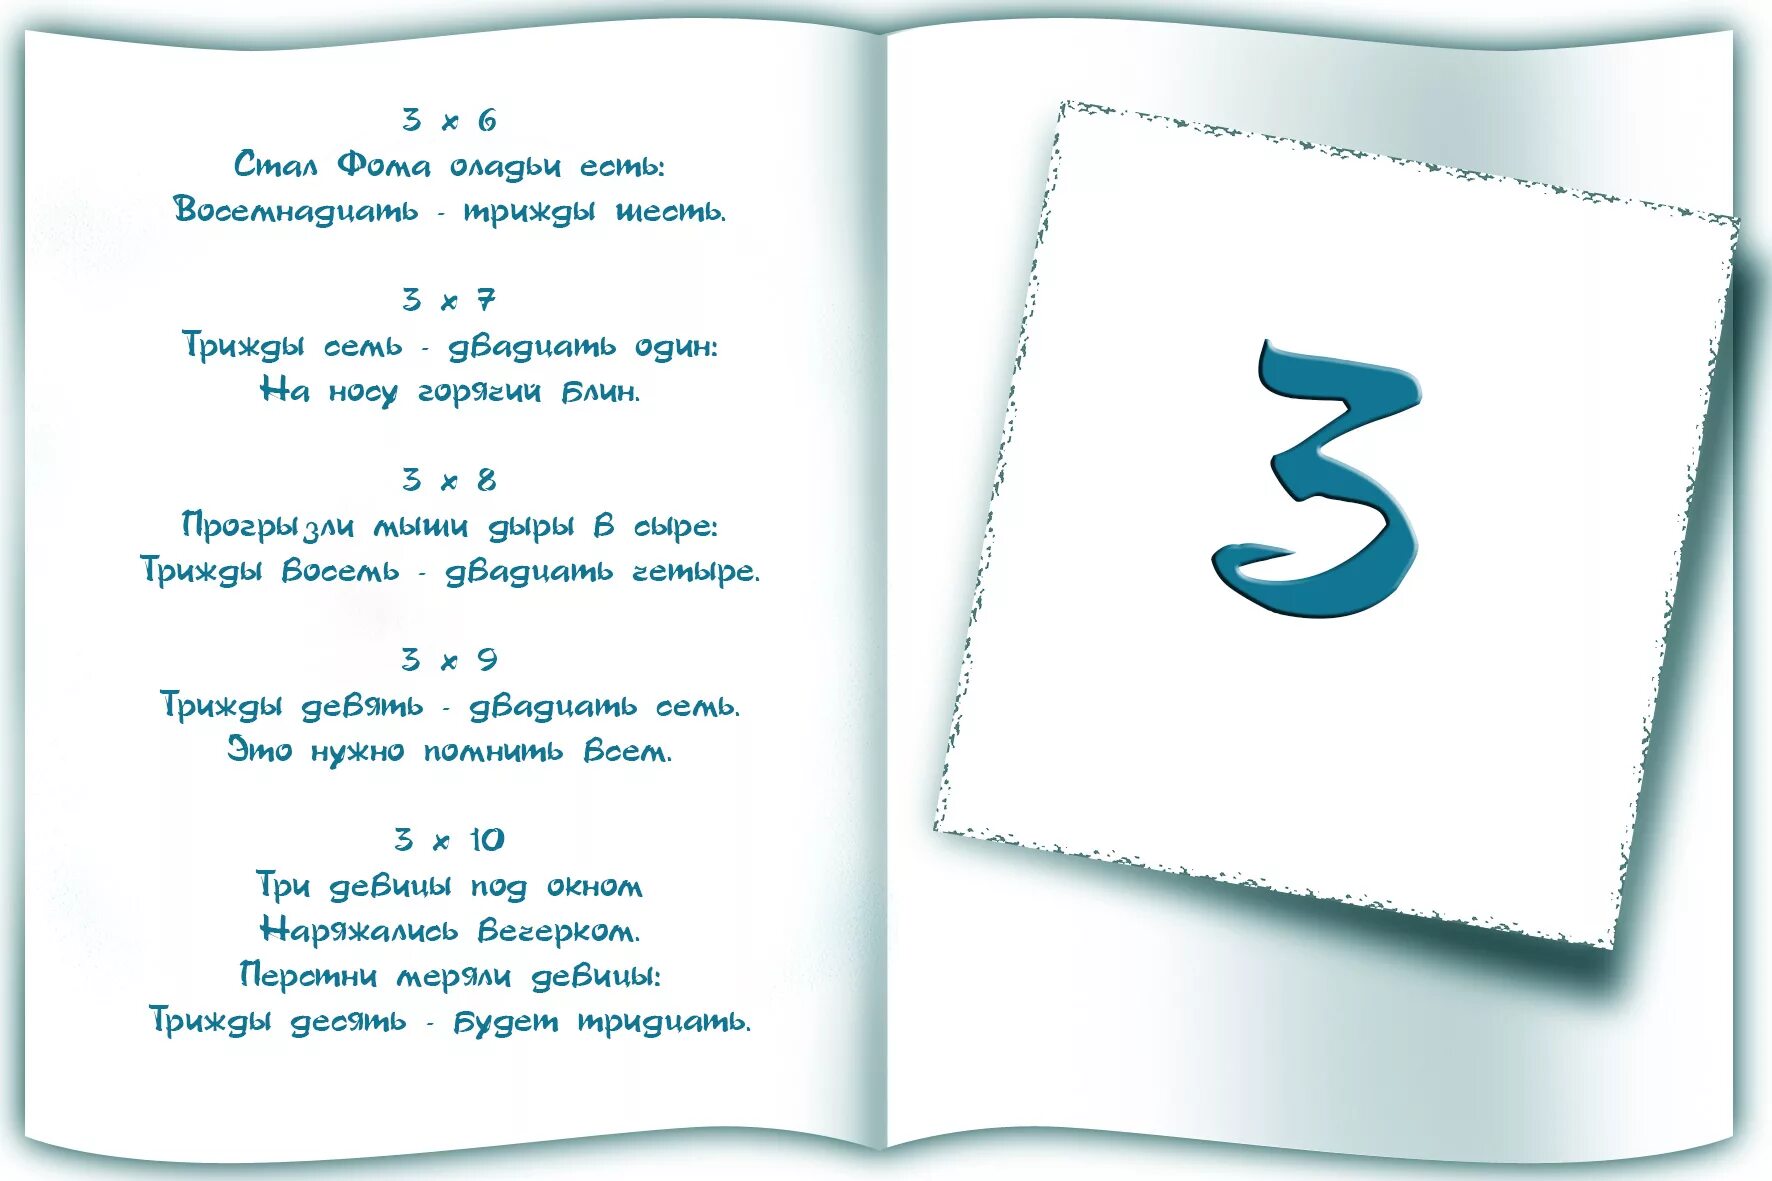 3 x 6
Стал Фома оладьи есть:
Восемнадцать - трижды шесть.
3 x 7
Трижды семь - двадцать один:
На носу горячий блин.
3 x 8
Прогрызли мыши дыры в сыре:
Трижды восемь - двадцать четыре.
3 x 9
Трижды девять - двадцать семь.
Это нужно помнить всем.
3 x 10
Три девицы под окном
Наряжались вечерком.
Перстни меряли девицы:
Трижды десять - будет тридцать.
3